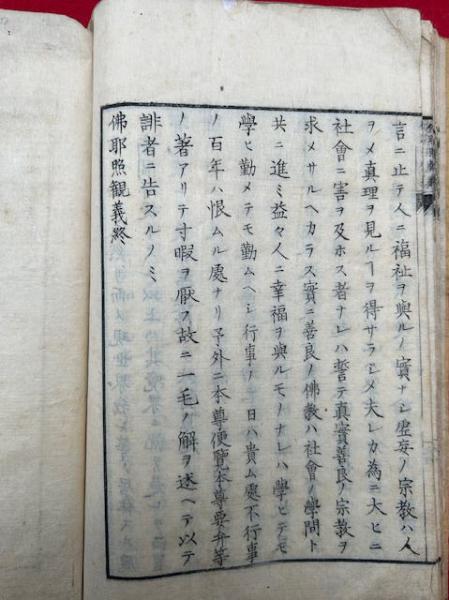 言ニ止テ人ニ福祉ヲ與ルノ實ナシ虚妄ノ宗教ハ人
ヲメ真理ヲ見ルヿヲ得サラシメ夫レカ為ニ大ヒニ
社會ニ害ヲ及ホス者ナレハ誓テ真實善良ノ宗教ヲ
求メサルヘカラス實ニ善良ノ佛教ハ社會ノ學問ト
共ニ進ミ益々人ニ幸福ヲ與ルモノナレハ學ヒテモ
學ヒ勤メテモ勤ムヘシ行事ノ一日ハ貴ム處不行事
ノ百年ハ恨ムル處ナリ予外ニ本尊便覽本尊要弁等
ノ著アリテ寸暇ヲ厭フ故ニ一毛ノ解ヲ述ヘテ以テ
誹者ニ告スルノミ
佛耶照観義終